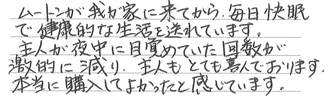 ムートンが我が家に来てから、毎日快眠
で健康的な生活を送れています。
主人が夜中に目覚めていた回数が
激的に減り、主人もとても喜んでおります。
本当に購入してよかったと感じています。